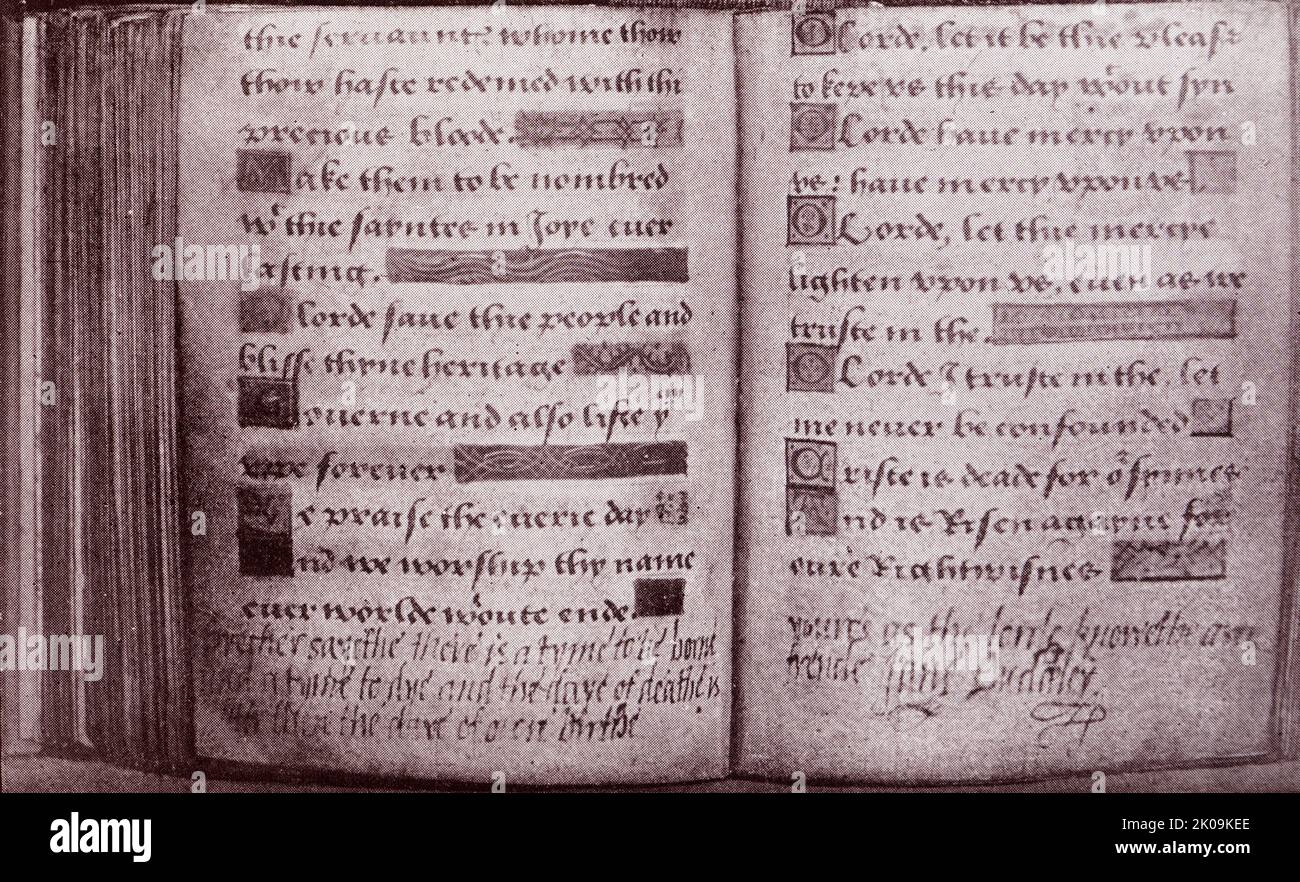 thie seruauntes whome thow
thow haste redemed with thi
precious blode.
Make them to be nombred
wt thie sayntes in Joye euer
lasting.
O lorde saue thie people and
blisse thyne heritage
Gouerne and also lifte ym
vppe forever
We praise the euerie day
And we worship thy name
euer worlde wtoute ende.
precher sayethe there is a tyme to be borne
and a tyme to dye and the daye of deathe is
the daye of birthe
O Lorde, let it be thie pleasr
to kepe vs this day wtout syn
O Lorde haue mercy vpon
vs: haue mercy vpon vs
O Lorde, let thie mercye
lighten vpon vs, euen as we
truste in the.
O Lorde I truste in the, let
me never be confounded
Criste is deade for or synnes
And is Risen agayne for
oure Rightwisnes
yours as the lorde knowethe as a
frende Jane Duddley
alamy
a
alamy
Image ID: 2K09KEE
www.alamy.com